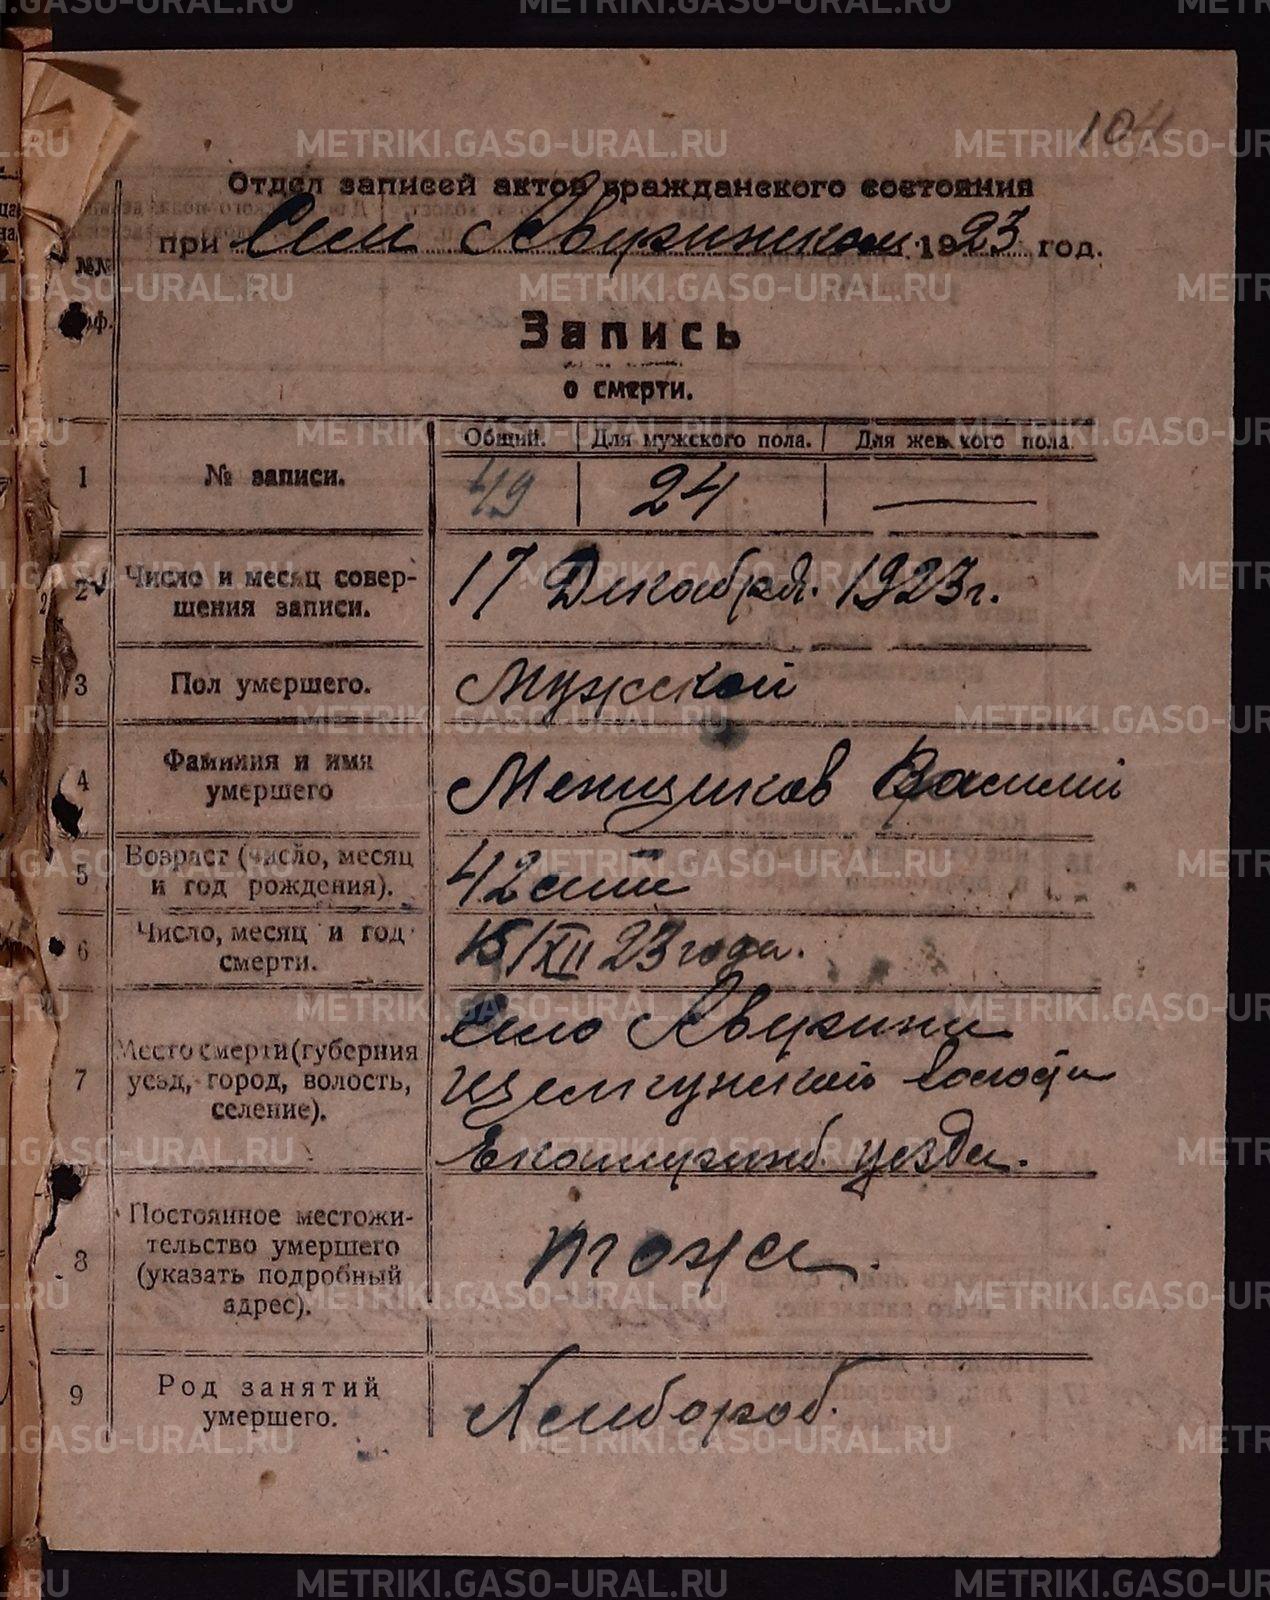 104
Отдел записей актов гражданского состояния
при Селе Аверинском 1923 год.
№№
граф.
Запись
о смерти.
Общий. Для мужского пола. Для женского пола.
1 № записи. 49 24 —
2 Число и месяц совер-
шения записи. 17 Декабря. 1923 г.
3 Пол умершего. Мужской
4 Фамилия и имя
умершего Менщиков Василий
5 Возраст (число, месяц
и год рождения). 42 лет
6 Число, месяц и год
смерти. 15/XII 23 года.
7 Место смерти (губерния
уезд, город, волость,
селение). Село Аверино
Щелкунской волости
Екатеринб. уезда.
8 Постоянное местожи-
тельство умершего
(указать подробный
адрес). тоже.
9 Род занятий
умершего.
METRIKI.GASO-URAL.RU